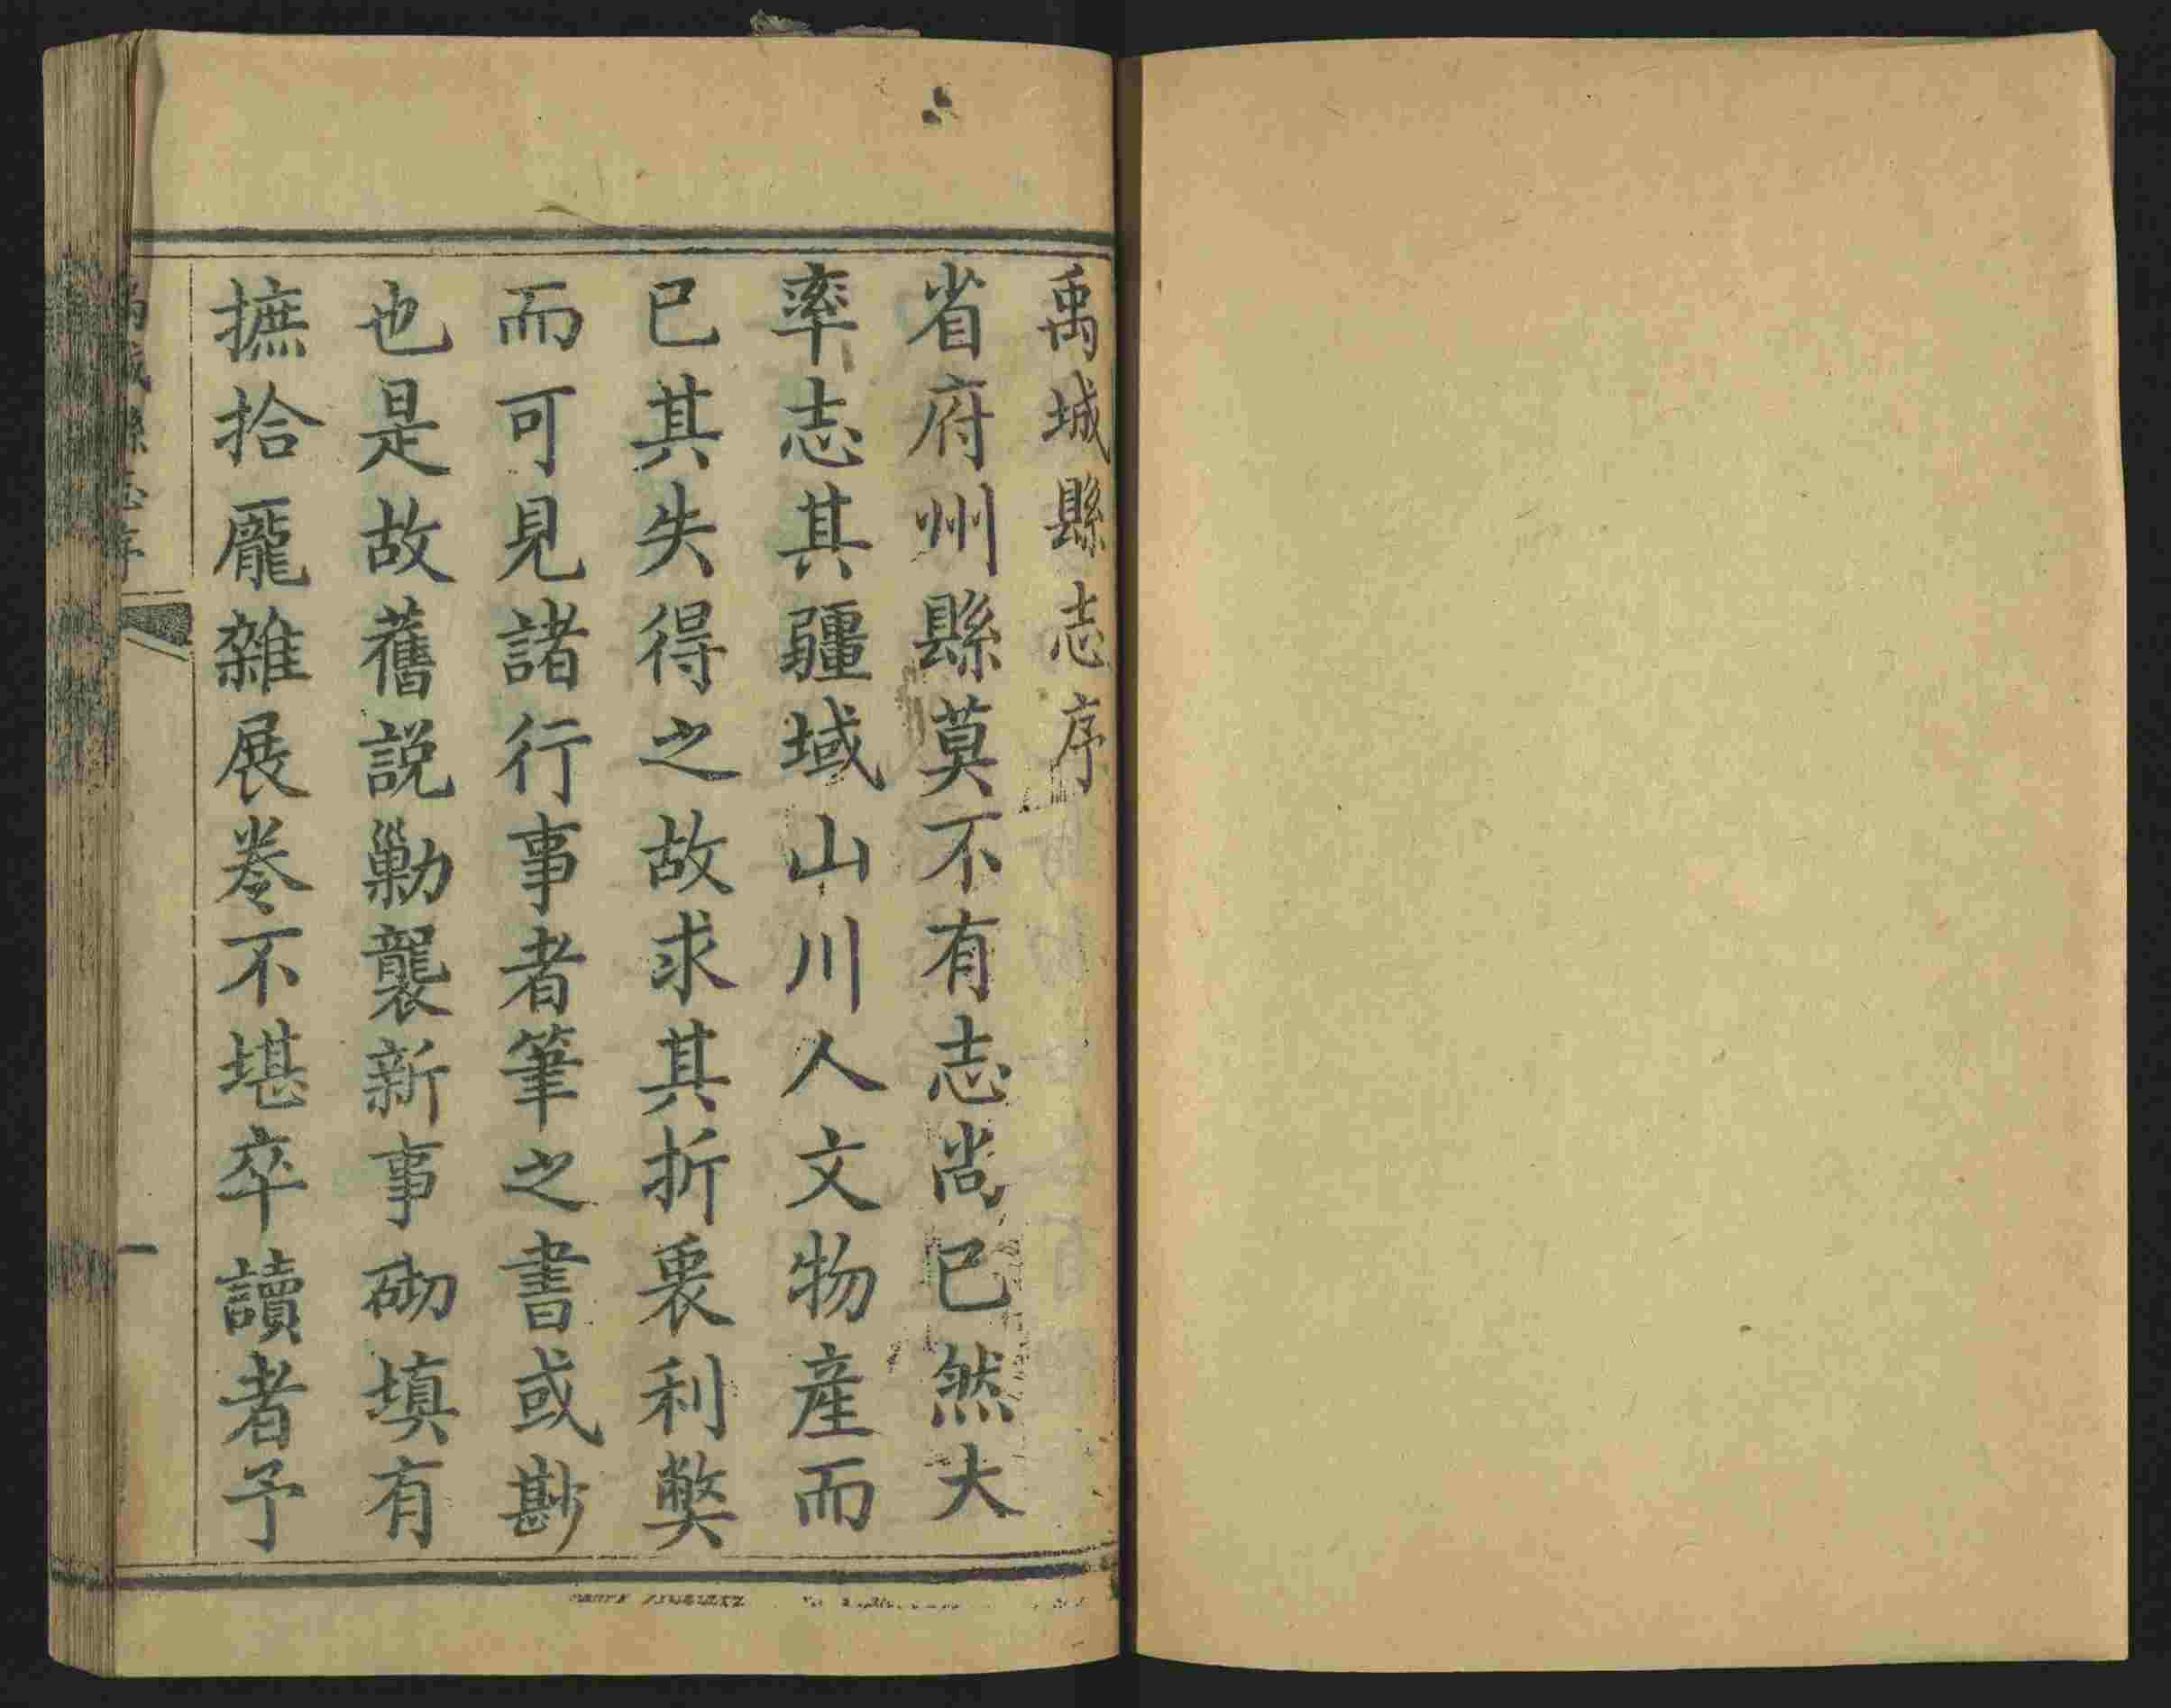 禹城縣志序
省府州縣莫不有志尚已然大
率志其疆域山川人文物產而
已其失得之故求其折衷利獘
而可見諸行事者筆之書或尠
也是故舊説勦襲新事砌填有
摭拾龎雜展卷不堪卒讀者予
一